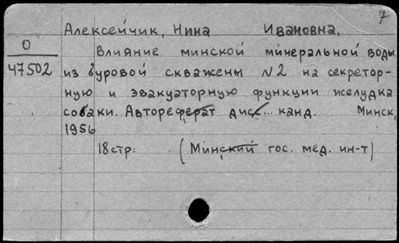 7
Алексейчик, Нина Ивановна,
О
47502
Влияние минской минеральной воды
из буровой скважены №2 на секретор-
ную и эвакуаторную функции желудка
собаки. Автореферат дис... канд. Минск,
1956
18 стр. (Минский гос. мед. ин-т)